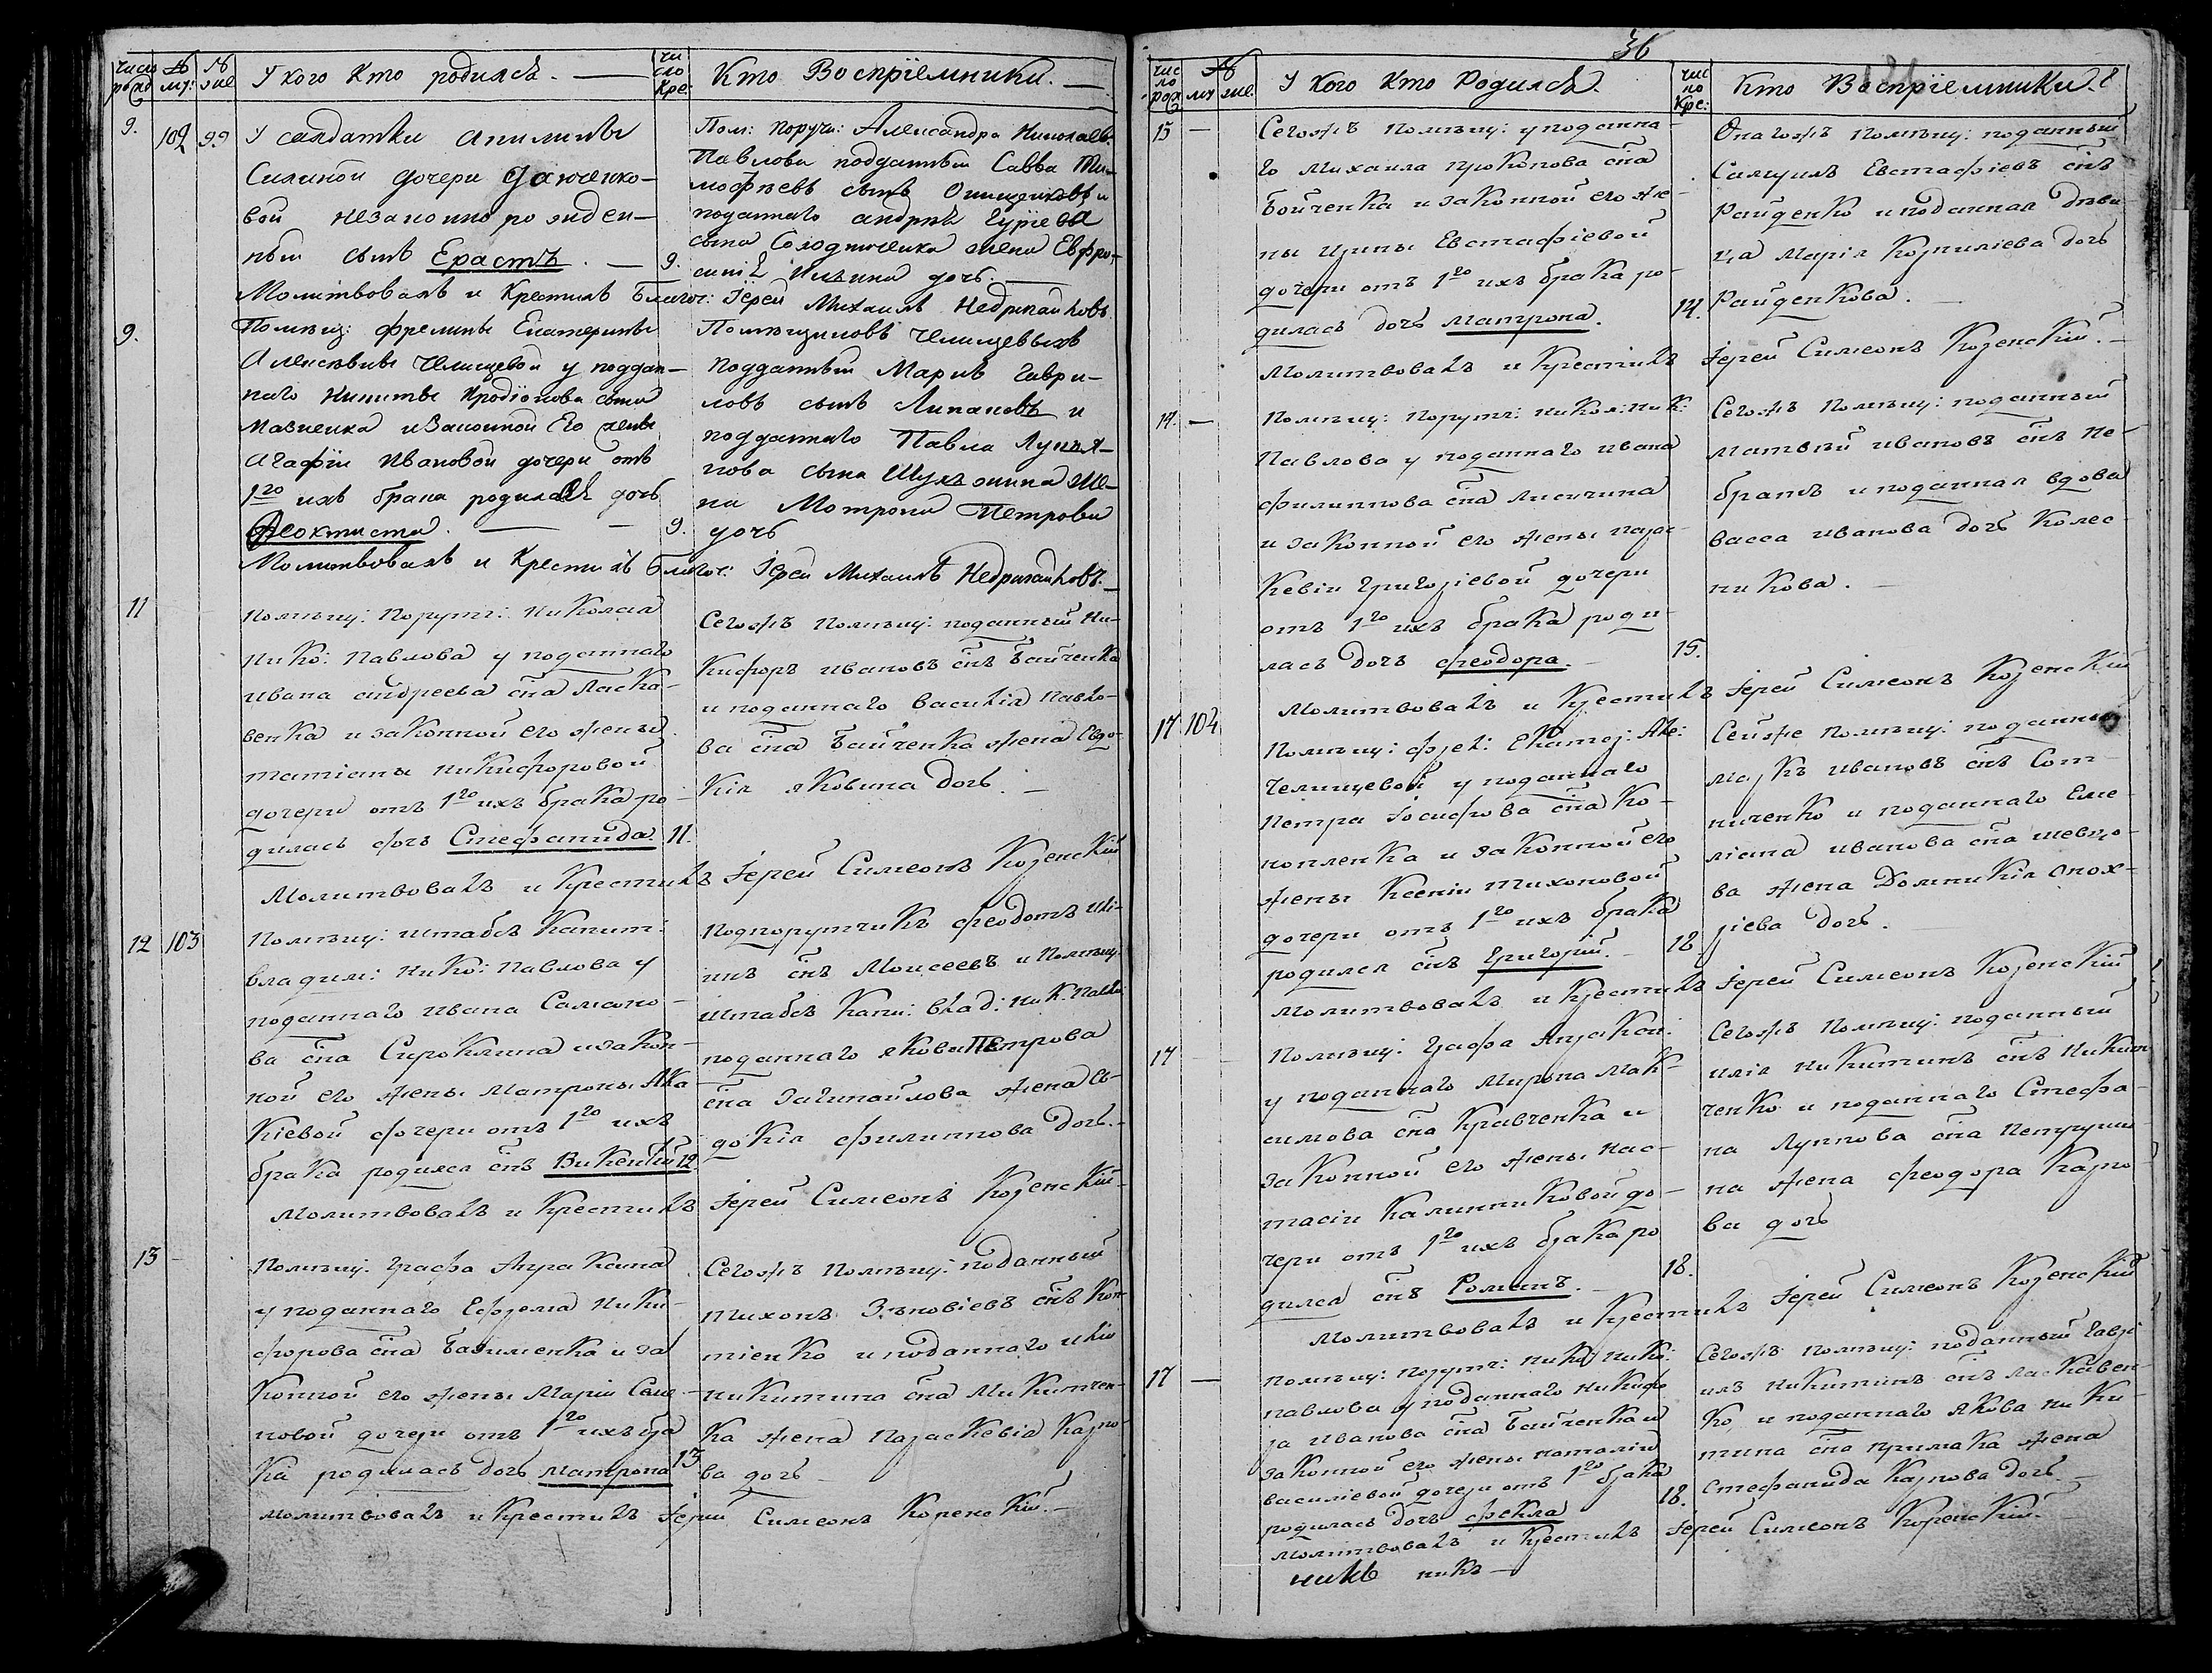 число рожд № му: № же У кого кто родился. — число кре: Кто Воспріемники. —
9. 102 99 У салдатки Акилины
Силиной дочери
вой незаконно рожден—
ный сынъ Ерастъ. — 9.
Пом: поруч: Александра Николаев:
Павлова подданный Савва Ти—
мофѣевъ сынъ и
поданнаго Андрея Гуріева
сына жена Евфро—
синія дочь.
Молитвовалъ и Крестилъ Благоч: Іерей Михаилъ
9. Помѣщ: фрелины Екатерины
Алексѣевны Челищевой у поддан—
наго Никиты Иродіонова сына
и Законной Его жены
Агафіи Ивановой дочери отъ
1го ихъ брака родилась дочь
Феоктиста. — 9.
Помѣщиковъ Челищевыхъ
Подданный Марка Гаври—
ловъ сынъ Липановъ и
подданнаго Павла
нова сына же—
на Мотрона Петрова
дочь
Молитвовалъ и Крестилъ Благоч: Іерей Михаилъ
11 Помѣщ: Порутч: Николая
Нико: Павлова у поданнаго
Ивана Андреева сна Ласка—
венка и законной его жены
Татіаны Никифоровой
дочери отъ 1го ихъ брака ро—
дилась дочь Стефанида. 11.
Сегожъ Помѣщ: поданный Ни—
кифоръ Ивановъ снъ Байченка
и поданнаго Василія Павло—
ва сна Байченка жена Евдо—
кія Яковина дочь. —
Молитвовалъ и Крестилъ Іерей Симеонъ Коренскій
12 103 Помѣщ: Штабсъ Капит:
Владим: Нико: Павлова у
поданнаго Ивана Самсоно—
ва сна Сироклина и закон—
ной его жены Матроны Ака
кіевой дочери отъ 1го ихъ
брака родился снъ Викентій 12.
Подпорутчикъ Феодотъ Иль—
инъ снъ Моисеевъ и Помѣщ:
Штабсъ Капи: Влад: Ник. Павло:
поданнаго Якова Петрова
сна Загинайлова жена Ев—
докія Филиппова дочь. —
Молитвовалъ и Крестилъ Іерей Симеонъ Коренскій
13 — Помѣщ: Графа Апраксина
у поданнаго Ефрема Ники—
форова сна Базименка и за
конной его жены Маріи Семе—
новой дочери отъ 1го ихъ бра
ка родилась дочь Матрона 13.
Сегожъ Помѣщ: поданный
Тихонъ Зѣновіевъ снъ Кон—
тіенко и поданнаго Иліи
Никитина сна Микитчен—
ка жена Параскевія Карпо—
ва дочь —
Молитвовалъ и Крестилъ Іерей Симеонъ Коренскій. —
36
число рож № му же. У кого кто Родился. число кре: Кто Воспріемники.
15 — Сегожъ Помѣщ: у поданна—
го Михаила Прокопова сна
Бойченка и законной его же—
ны Ирины Евстафіевой
дочери отъ 1го ихъ брака ро—
дилась дочь Матрона. 14.
Онагожъ Помѣщ: поданный
Самуилъ Евстафіевъ снъ
Райденко и поданная дѣви—
ца Марія Корниліева дочь
Райденкова. —
Молитвовалъ и Крестилъ Іерей Симеонъ Коренскій. —
14. — Помѣщ: Порутч: Никол: Ник:
Павлова у поданнаго Ивана
Филиппова сна Лисичина
и законной его жены Парас—
кевіи Григоріевой дочери
отъ 1го ихъ брака роди—
лась дочь Феодора. — 15.
Сегожъ Помѣщ: поданный
Матвѣй Ивановъ снъ Не—
братъ и поданная вдова
Васса Иванова дочь Колес—
никова. —
Молитвовалъ и Крестилъ Іерей Симеонъ Коренскій
17 104 Помѣщ: Фрел: Екатер: Але:
Челищевой у поданнаго
Петра Іосифова сна Ко—
нопленка и законной его
жены Ксеніи Тихоновой
дочери отъ 1го ихъ брака
родился снъ Григорій. — 18
Сейже Помѣщ: поданный
Маркъ Ивановъ снъ Сот—
ниченко и поданнаго Еме—
ліана Иванова сна Шевцо—
ва жена Домникія Онох—
ріева дочь.
Молитвовалъ и Крестилъ Іерей Симеонъ Коренскій
17 Помѣщ: Графа Апраксин:
у поданнаго Мирона Мак—
симова сна Кравченка и
законной его жены Нас—
тасіи Калинниковой до—
чери отъ 1го ихъ брака ро
дился снъ Романъ. — 18.
Сегожъ Помѣщ: поданный
Илія Никитинъ снъ Никит
ченко и поданнаго Стефа—
на Луппова сна Петруши—
на жена Феодора Карпо—
ва дочь
Молитвовалъ и Крестилъ Іерей Симеонъ Коренскій
17 — Помѣщ: Порутч: Нико: Нико:
Павлова у поданнаго Никифо
ра Иванова сна Байченка и
законной его жены Наталіи
Василіевой дочери отъ 1го брака
родилась дочь Фекла 18.
Сегожъ Помѣщ: поданный Гаврі
илъ Никитинъ снъ Ласкавен—
ко, и поданнаго Якова Ники—
тина сна Примака жена
Стефанида Карпова дочь. —
Молитвовалъ и Крестилъ Іерей Симеонъ Коренскій. —